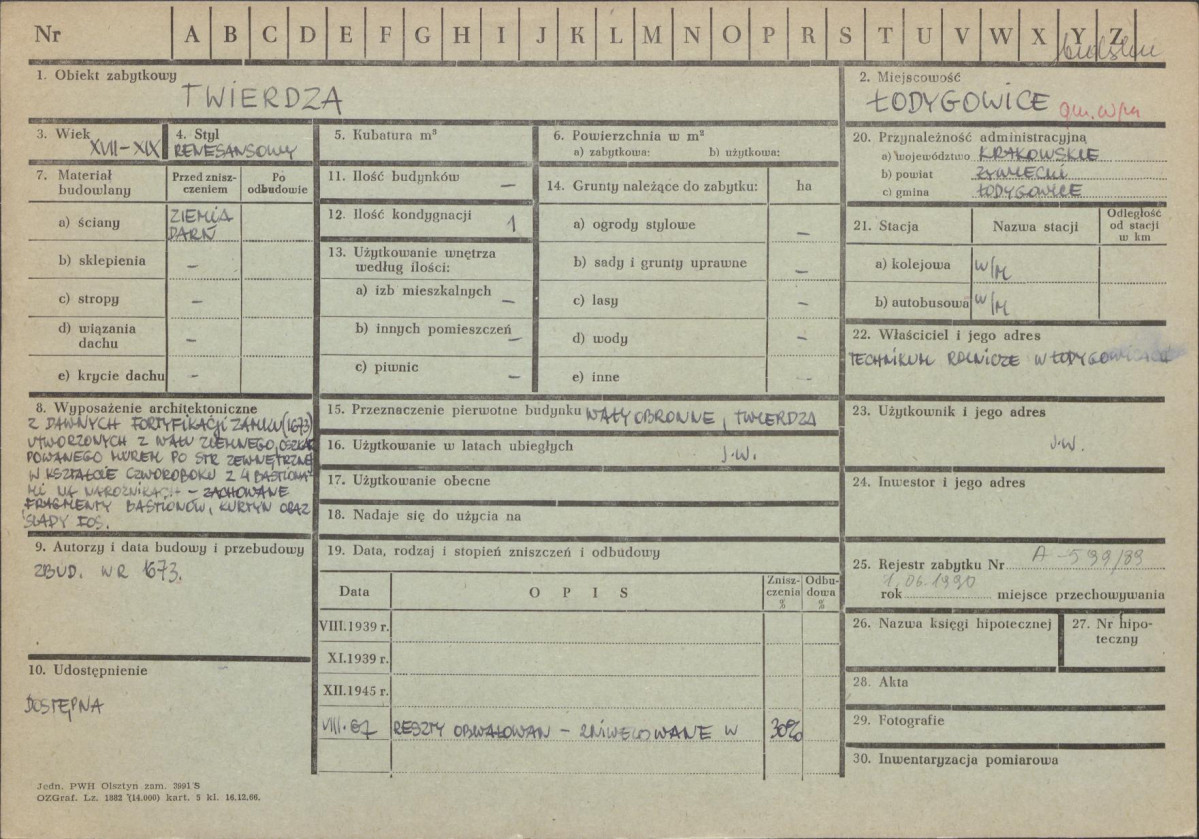 Nr A B C D E F G H I J K L M N O P R S T U V W X Y Z
bielskie
1. Obiekt zabytkowy
TWIERDZA
2. Miejscowość
ŁODYGOWICE
3. Wiek
XVII-XIX
4. Styl
RENESANSOWY
5. Kubatura m³
6. Powierzchnia w m²
a) zabytkowa: b) użytkowa:
20. Przynależność administracyjną
a) województwo KRAKOWSKIE
b) powiat ŻYWIECKI
c) gmina ŁODYGOWICE
7. Materiał budowlany
Przed zniszczeniem
Po odbudowie
a) ściany ZIEMIA
DARŃ
b) sklepienia –
c) stropy –
d) wiązania
dachu –
e) krycie dachu –
11. Ilość budynków –
12. Ilość kondygnacji 1
13. Użytkowanie wnętrza
według ilości:
a) izb mieszkalnych –
b) innych pomieszczeń –
c) piwnic –
14. Grunty należące do zabytku: ha
a) ogrody stylowe –
b) sady i grunty uprawne –
c) lasy –
d) wody –
e) inne –
21. Stacja
Nazwa stacji
Odległość
od stacji
w km
a) kolejowa W/M
b) autobusowa W/M
22. Właściciel i jego adres
TECHNIKUM ROLNICZE W ŁODYGOWICACH
8. Wyposażenie architektoniczne
Z DAWNYCH FORTYFIKACJI ZAMKU (1673)
UTWORZONYCH Z WAŁU ZIEMNEGO, OSZKAR
POWANEGO MUREM PO STR ZEWNĘTRZNEJ
W KSZTAŁCIE CZWOROBOKU Z 4 BASTIONA-
MI NA NAROŻNIKACH – ZACHOWANE
FRAGMENTY BASTIONÓW, KURTYN ORAZ
ŚLADY FOS.
15. Przeznaczenie pierwotne budynku WAŁY OBRONNE, TWIERDZA
16. Użytkowanie w latach ubiegłych J.W.
17. Użytkowanie obecne
18. Nadaje się do użycia na
23. Użytkownik i jego adres
J.W.
24. Inwestor i jego adres
9. Autorzy i data budowy i przebudowy
ZBUD. W R 1673.
19. Data, rodzaj i stopień zniszczeń i odbudowy
Data
O P I S
Znisz-
czenia
%
Odbu-
dowa
%
VIII.1939 r.
XI.1939 r.
XII.1945 r.
VIII.67 RESZTY OBWAŁOWAŃ – ZNIWELOWANE W 30%
25. Rejestr zabytku Nr A-599/89
1.06.1990
rok miejsce przechowywania
26. Nazwa księgi hipotecznej
27. Nr hipo-
teczny
10. Udostępnienie
DOSTĘPNA
28. Akta
29. Fotografie
30. Inwentaryzacja pomiarowa
Jedn. PWH Olsztyn zam. 3991 S
OZGraf. Lz. 1882 (14.000) kart. 5 kl. 16.12.66.